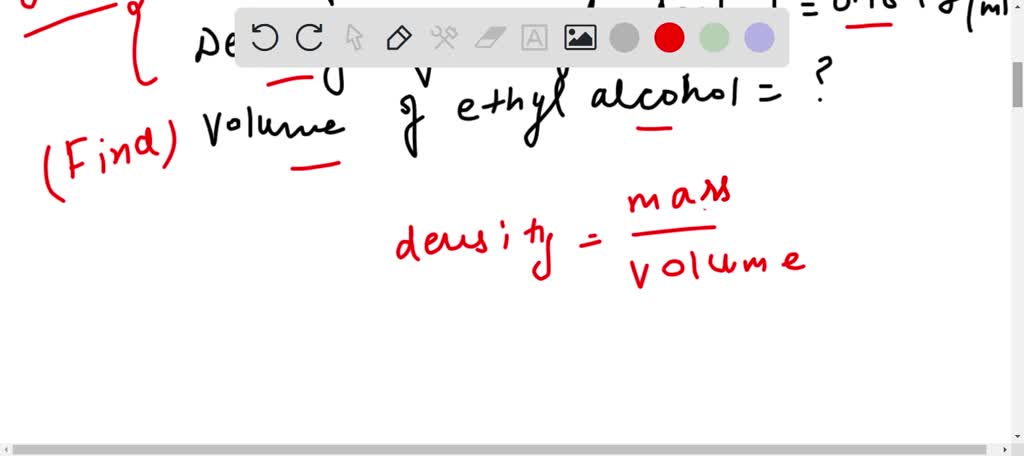 De = g/ml
volume of ethyl alcohol = ?
(Find)
density = mass
volume
A